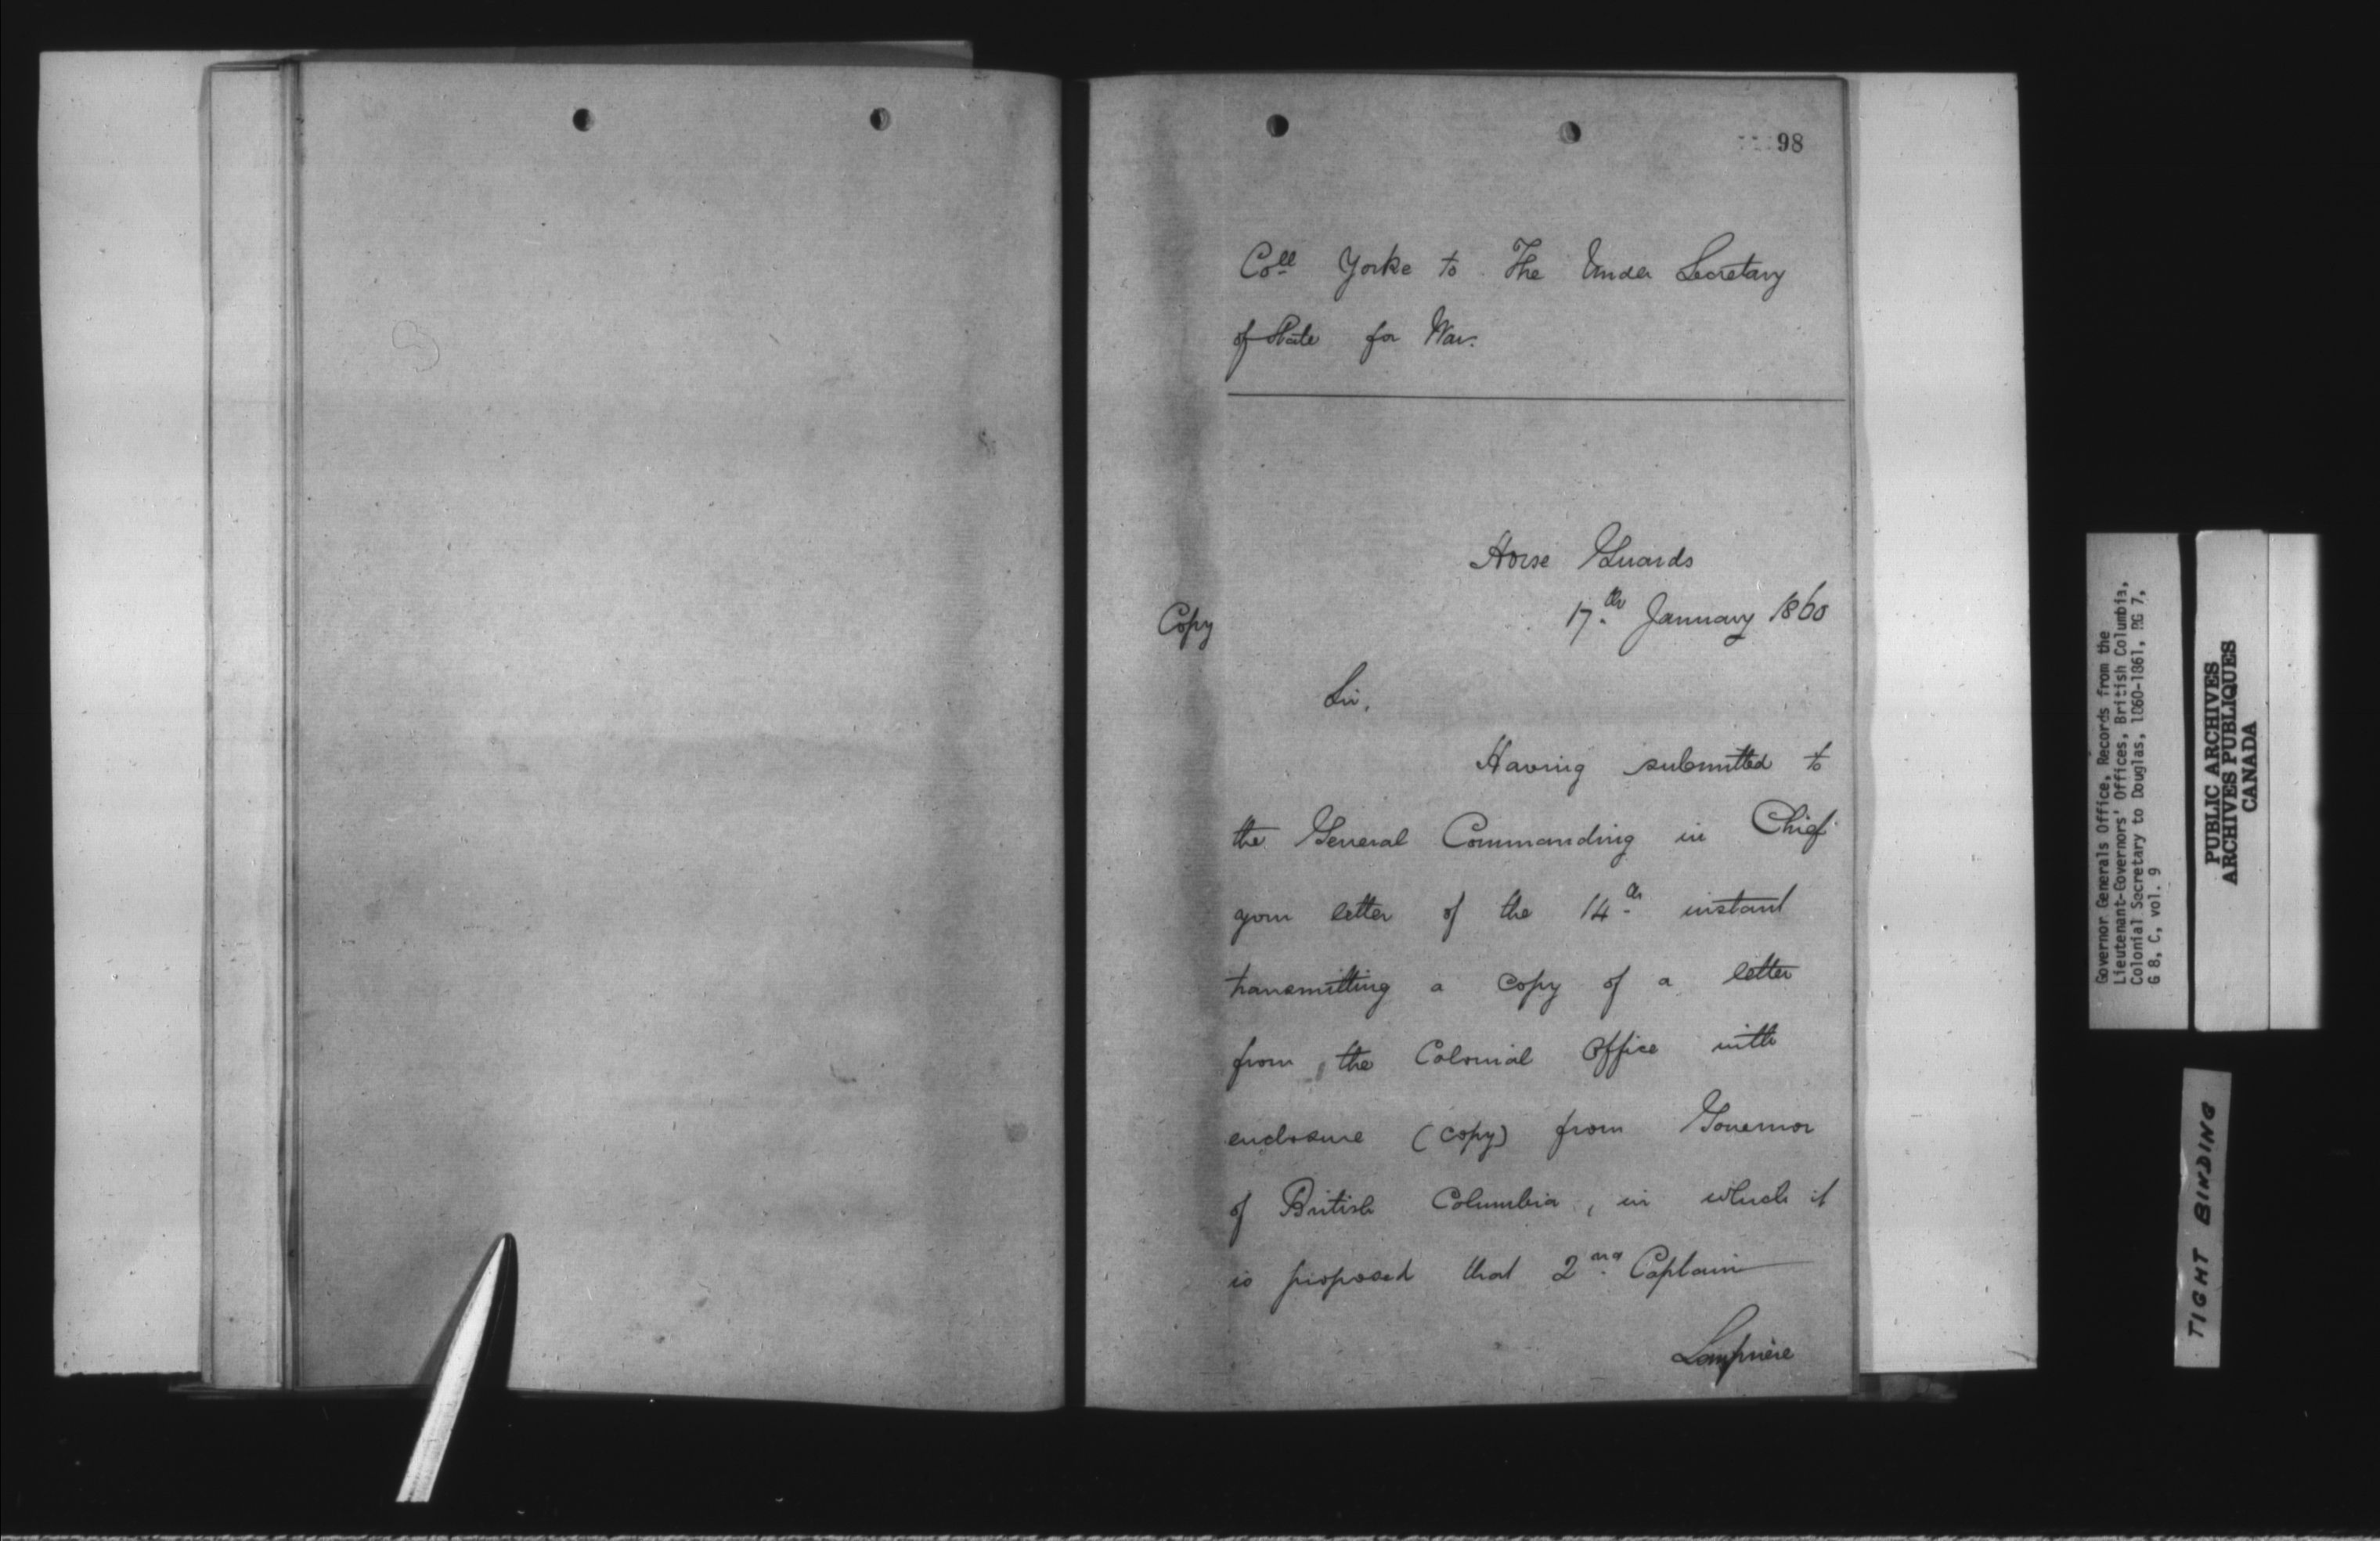 98
Coll Yorke to The Under Secretary
of State for War.
Horse Guards
17th January 1860
Copy
Sir,
Having submitted to
the General Commanding in Chief
your letter of the 14th instant
transmitting a copy of a letter
from the Colonial Office with
enclosure (copy) from Governor
of British Columbia, in which it
is proposed that 2nd Captain
Lempriere
Governor Generals Office, Records from the
Lieutenant-Governors' Offices, British Columbia,
Colonial Secretary to Douglas, 1860-1861, RG 7,
G 8, C, vol. 9
PUBLIC ARCHIVES
ARCHIVES PUBLIQUES
CANADA
TIGHT BINDING